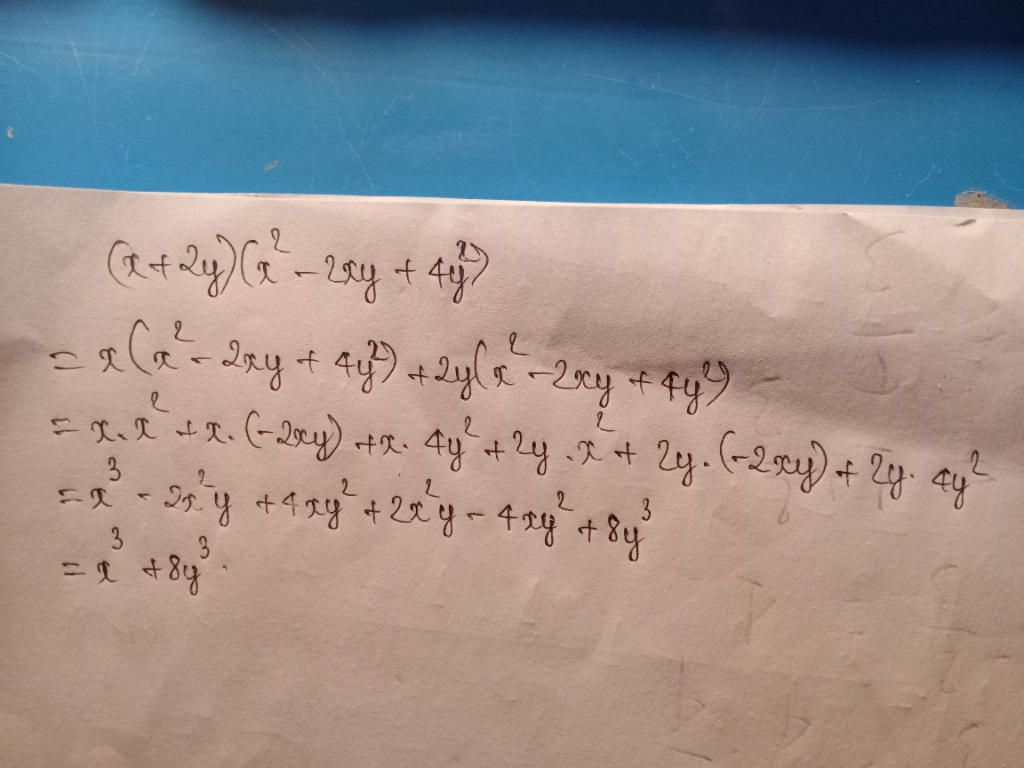 (x+2y)(x²-2xy+4y²)
=x(x²-2xy+4y²)+2y(x²-2xy+4y²)
=x.x²+x.(-2xy)+x.4y²+2y.x²+2y.(-2xy)+2y.4y²
=x³-2x²y+4xy²+2x²y-4xy²+8y³
=x³+8y³.